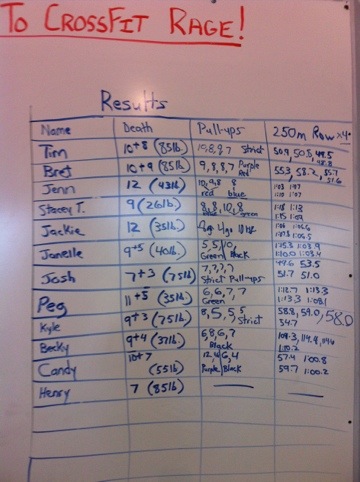 To CrossFit Rage!
Results
Name Death Pull-ups 250m Row x4
Tim 10+8 (85lb) 10,8,8,7 Strict 50.9, 50.8, 49.5
Bret 10+9 (85lb) 9,8,8,7 Purple Red 55.3, 58.2,
Jenn 12 (43lb) red blue
Stacey T. 9 (26lb) 8,8,10,8 green
Jackie 12 (35lb)
Janelle 9+5 (40lb) 5,5,10, Green Black 1:10.0 1:03.4
Josh 7+3 (75lb) 7,7,7,7 Strict Pull-ups 49.6 53.5 51.7 51.0
Peg 11+5 (35lb) 6,6,7,7 Green 1:12.7 1:13.3 1:13.3 1:08.1
Kyle 9+3 (75lb) 8,5,5,5 Strict 58.8, 59.0, 58.0 54.7
Becky 9+4 (37lb) 6,8,6,7 Black
Candy 10+7 (55lb) 12,4,6,4 Purple, Black 57.4 1:00.8 59.7 1:00.2
Henry 7 (85lb)